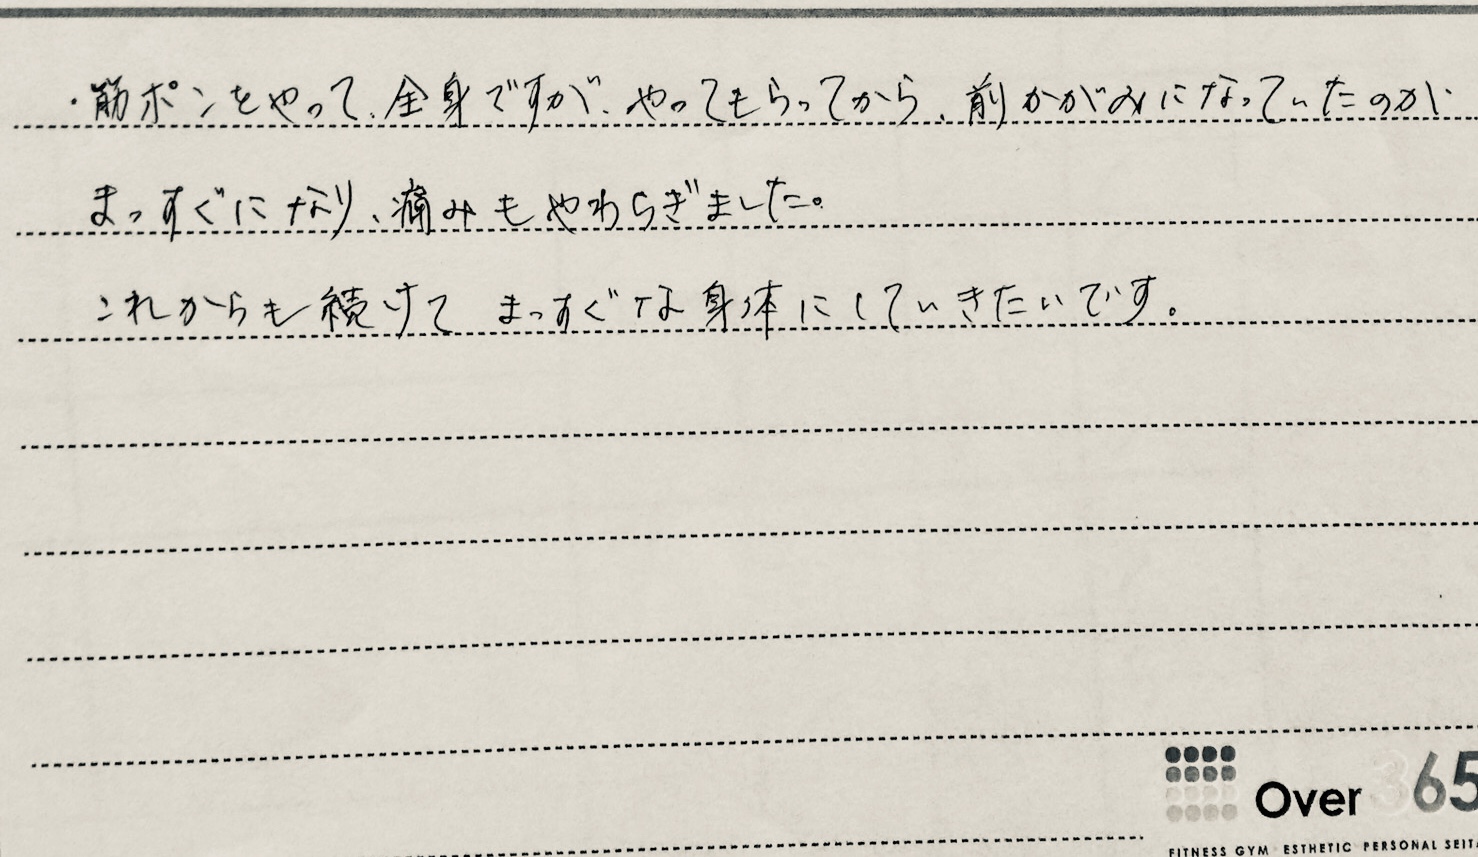 ・筋ポンをやって、全身ですが、やってもらってから、前かがみになっていたのが、
まっすぐになり、痛みもやわらぎました。
これからも続けて まっすぐな身体にしていきたいです。
Over 365
FITNESS GYM ESTHETIC PERSONAL SEIT